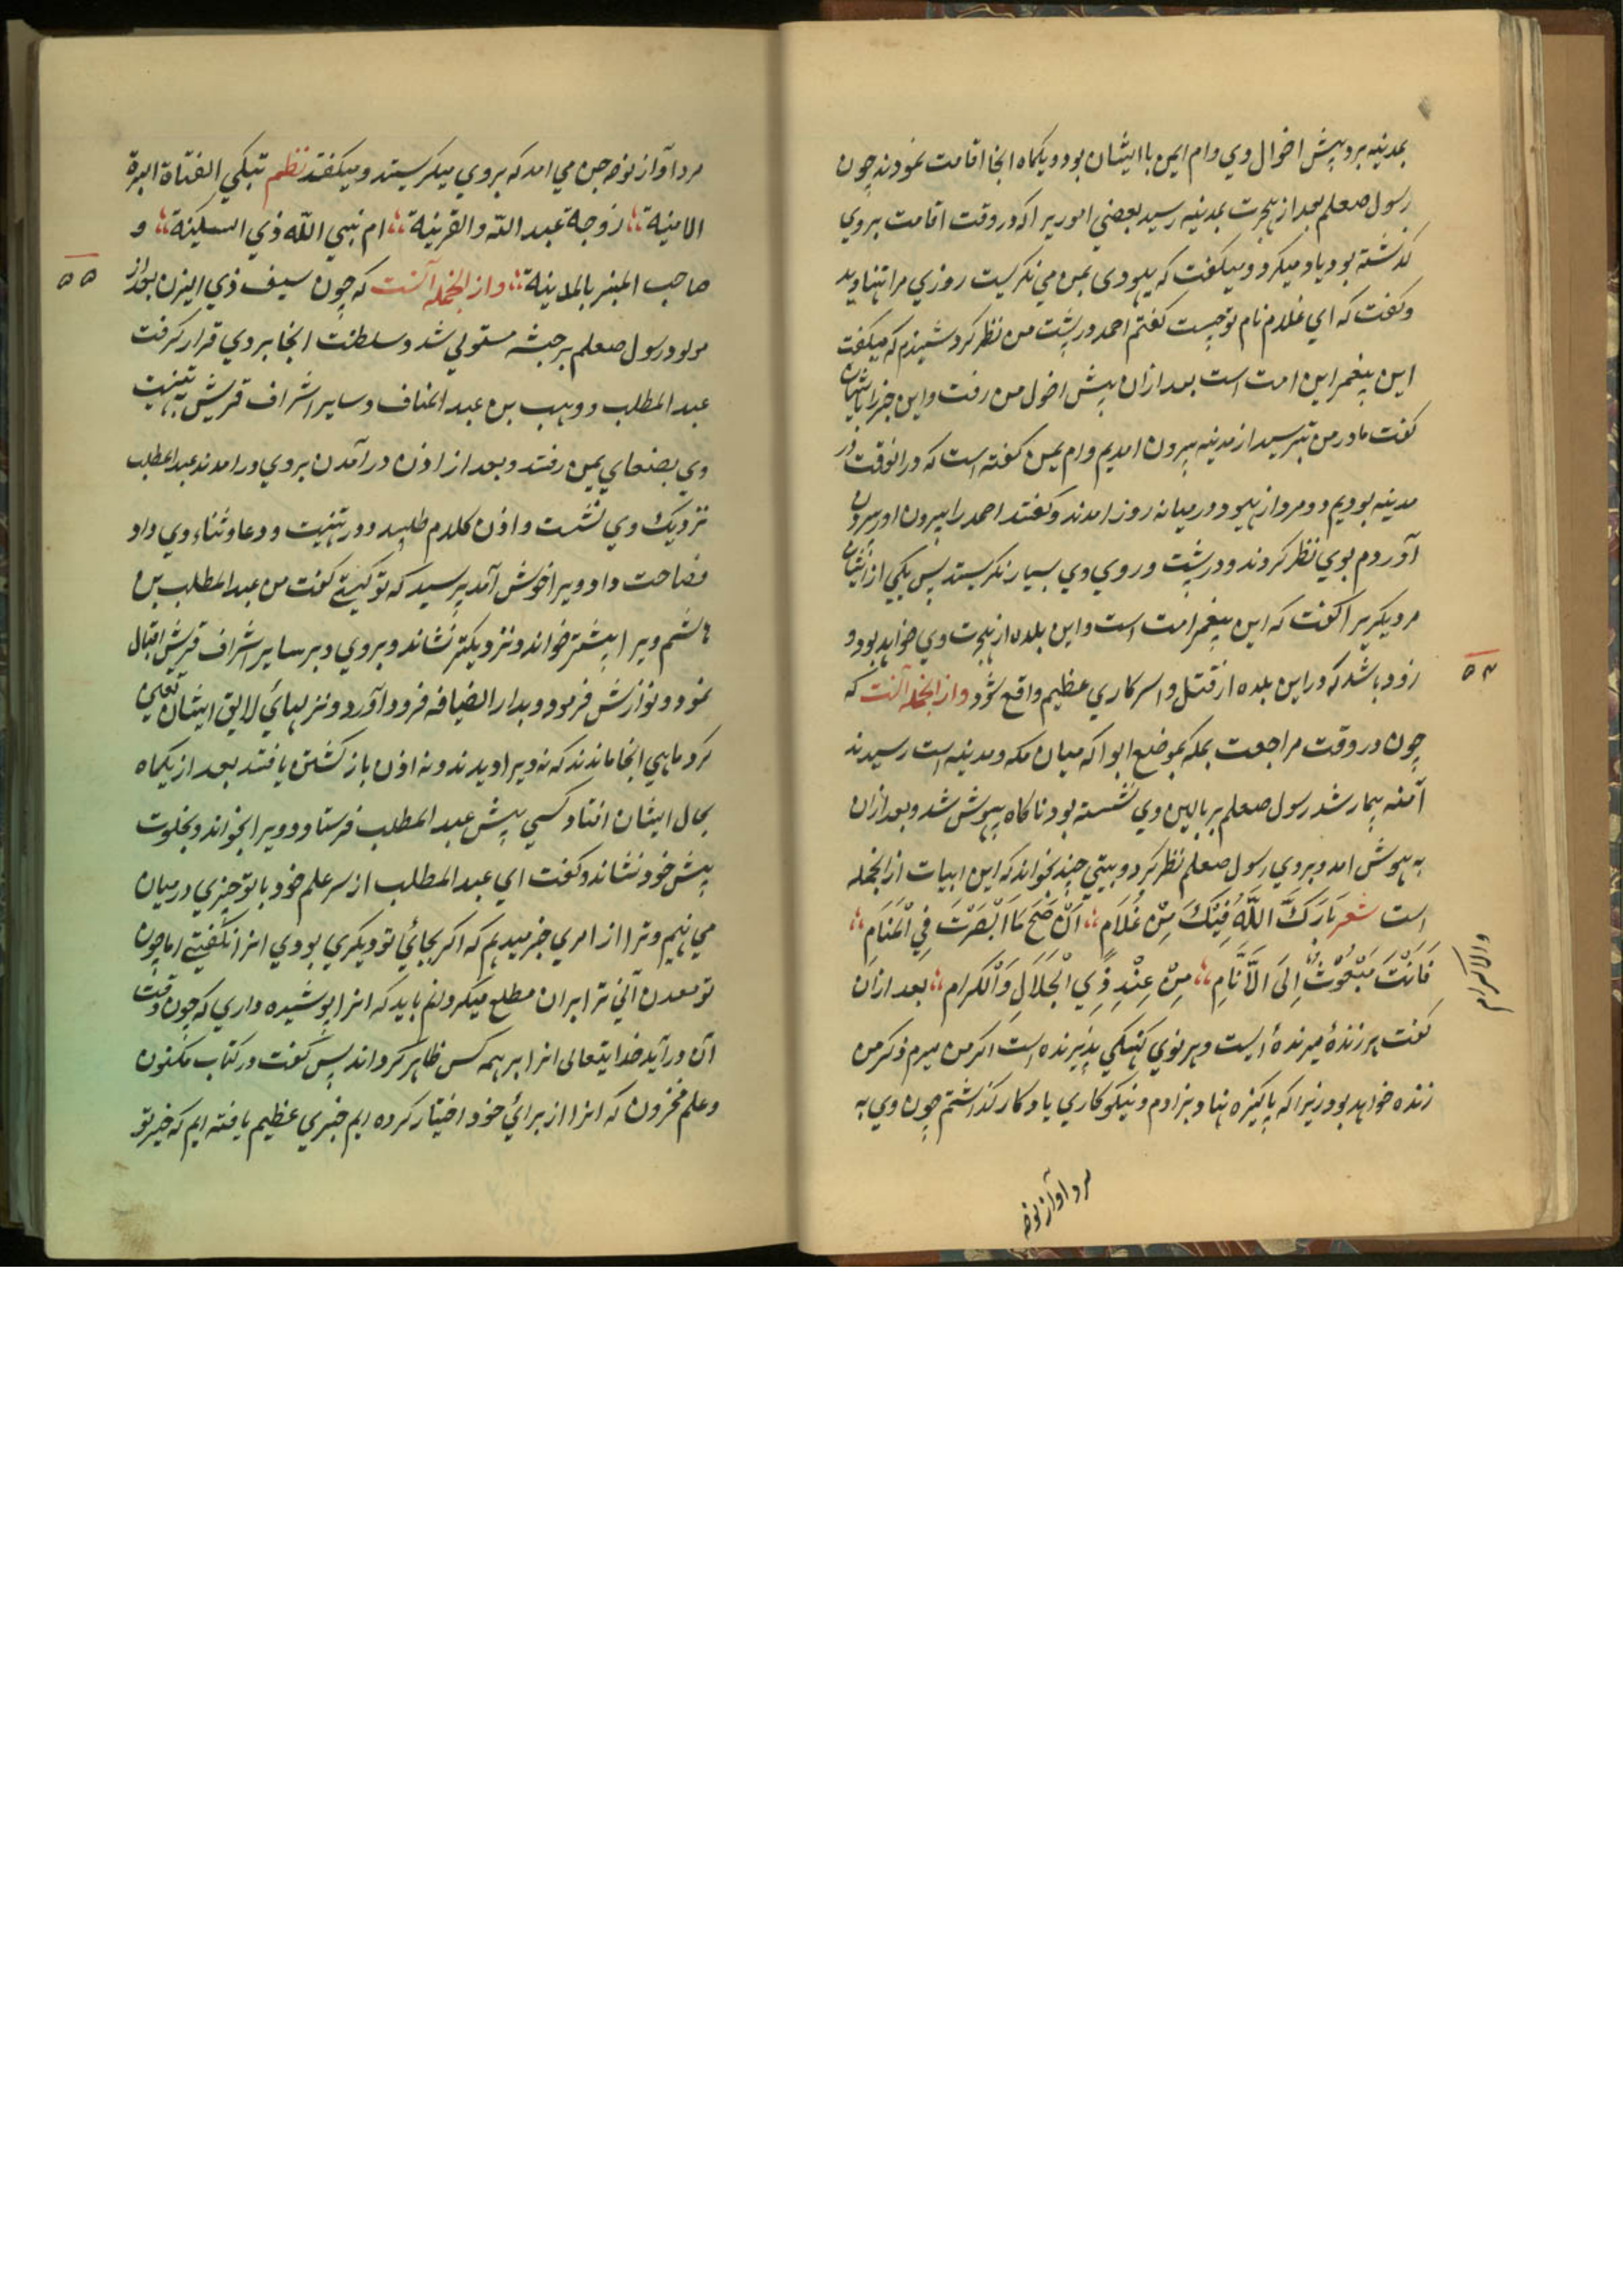 بمدینه برد پیش اخوال وی وام ایمن با ایشان بود و یکماه انجا اقامت نمودند چون
رسول صعلم بعد از هجرت بمدینه رسید بعضی امور یرا که در وقت اقامت بروی
کذشته بود یاد میکرد و میکفت که یهودی بمن می نکریست روزی مرا تنها دید
وکفت که ای غلام نام تو چیست کفتم احمد در پشت من نظر کرد شنیدم که میکفت
این پیغمبر این امت است بعد از ان پیش اخول من رفت و این خبر را با یشان
کفت مادر من بترسید از مدینه بیرون امدیم وام یمن کفته است که در انوقت در
مدینه بودیم دو مرد از یهود در میانه روز امدند و کفتند احمد را بیرون اور بیرون
آوردم بوی نظر کردند و در پشت و روی وی بسیار نکریستند پس یکی از ایشان
مر دیکریرا کفت که این پیغمبر امت است و این بلده از هجرت وی خواهد بود و
زود باشد که در این بلده از قتل و اسر کاری عظیم واقع شود و از الجمله آنست که
۵۴
چون در وقت مراجعت بمکه بموضع ابوا که میان مکه و مدینه است رسیدند
آمنه بیمار شد رسول صعلم بر بالین وی نشسته بود ناکاه بیهوش شد و بعد ازان
به هوش امد و بروی رسول صعلم نظر کرد و بیتی چند بخواند که این ابیات از الجمله
است شعر بَارَكَ اللّهُ فِيْكَ مِنْ غُلَامٍ اَنْ صَحَّ مَا اَبْصَرْتَ فِي الْمَنَامِ
فَاَنْتَ مَبْعُوْثٌ اِلَى الْاَنَامِ مِنْ عِنْدِ ذِي الْجَلَالِ وَالْكرام بعد ازان
والاکرام
کفت هر زندهٔ میرندهٔ است و هر نوی کهنکی پذیرنده است اکر من میرم ذکر من
زنده خواهد بود زیرا که پاکیزه نهاد بزادم و نیکوکاری یادکار کذاشتم چون وی به
مرد آواز نوحه
مرد آواز نوحه جن می امد که بروی میکریستند و میکفتند نظم تبكي الفتاة البرة
الامينة زوجة عبد الله والقرينة ام نبي الله ذي السكينة و
صاحب المنبر بالمدينة و از الجمله آنست که چون سیف ذی الیزن بعد از
۵۵
مولود رسول صعلم بر حبشه مستولی شد و سلطنت انجا بروی قرار کرفت
عبد المطلب و وهب بن عبد المناف و سایر اشراف قریش به تهنیت
وی بصنعای یمن رفتند و بعد از اذن در آمدن بروی در امدند عبد المطلب
نزدیک وی نشست و اذن کلام طلبید و در تهنیت و دعا و ثناء وی داد
فصاحت داد و ویرا خوش آمد پرسید که تو کیستی کفت من عبد المطلب بن
هاشم ویرا پیشتر خواند و نزدیکتر نشاند و بروی و بر سایر اشراف قریش اقبال
نمود و نوازش فرمود و بدار الضیافه فرود آورد و نزلهائی لایق ایشان تعیین
کرد ماهی انجا ماندند که نه ویرا دیدند و نه اذن باز کشتن یافتند بعد از یکماه
بحال ایشان افتاد کسی پیش عبد المطلب فرستاد و ویرا بخواند و بخلوت
پیش خود نشاند و کفت ای عبد المطلب از سر علم خود با تو چیزی در میان
می نهیم و ترا از امری خبر میدهم که اکر بجائی تو دیکری بودی انرا نکفتمی اما چون
تو معدن آنی ترا بران مطلع میکردانم باید که انرا پوشیده داری که چون وقت
آن در آید خدایتعالی انرا بر همه کس ظاهر کرداند پس کفت در کتاب مکنون
و علم مخزون که انرا از برائی خود اختیار کرده ایم خبری عظیم یافته ایم که خیر تو